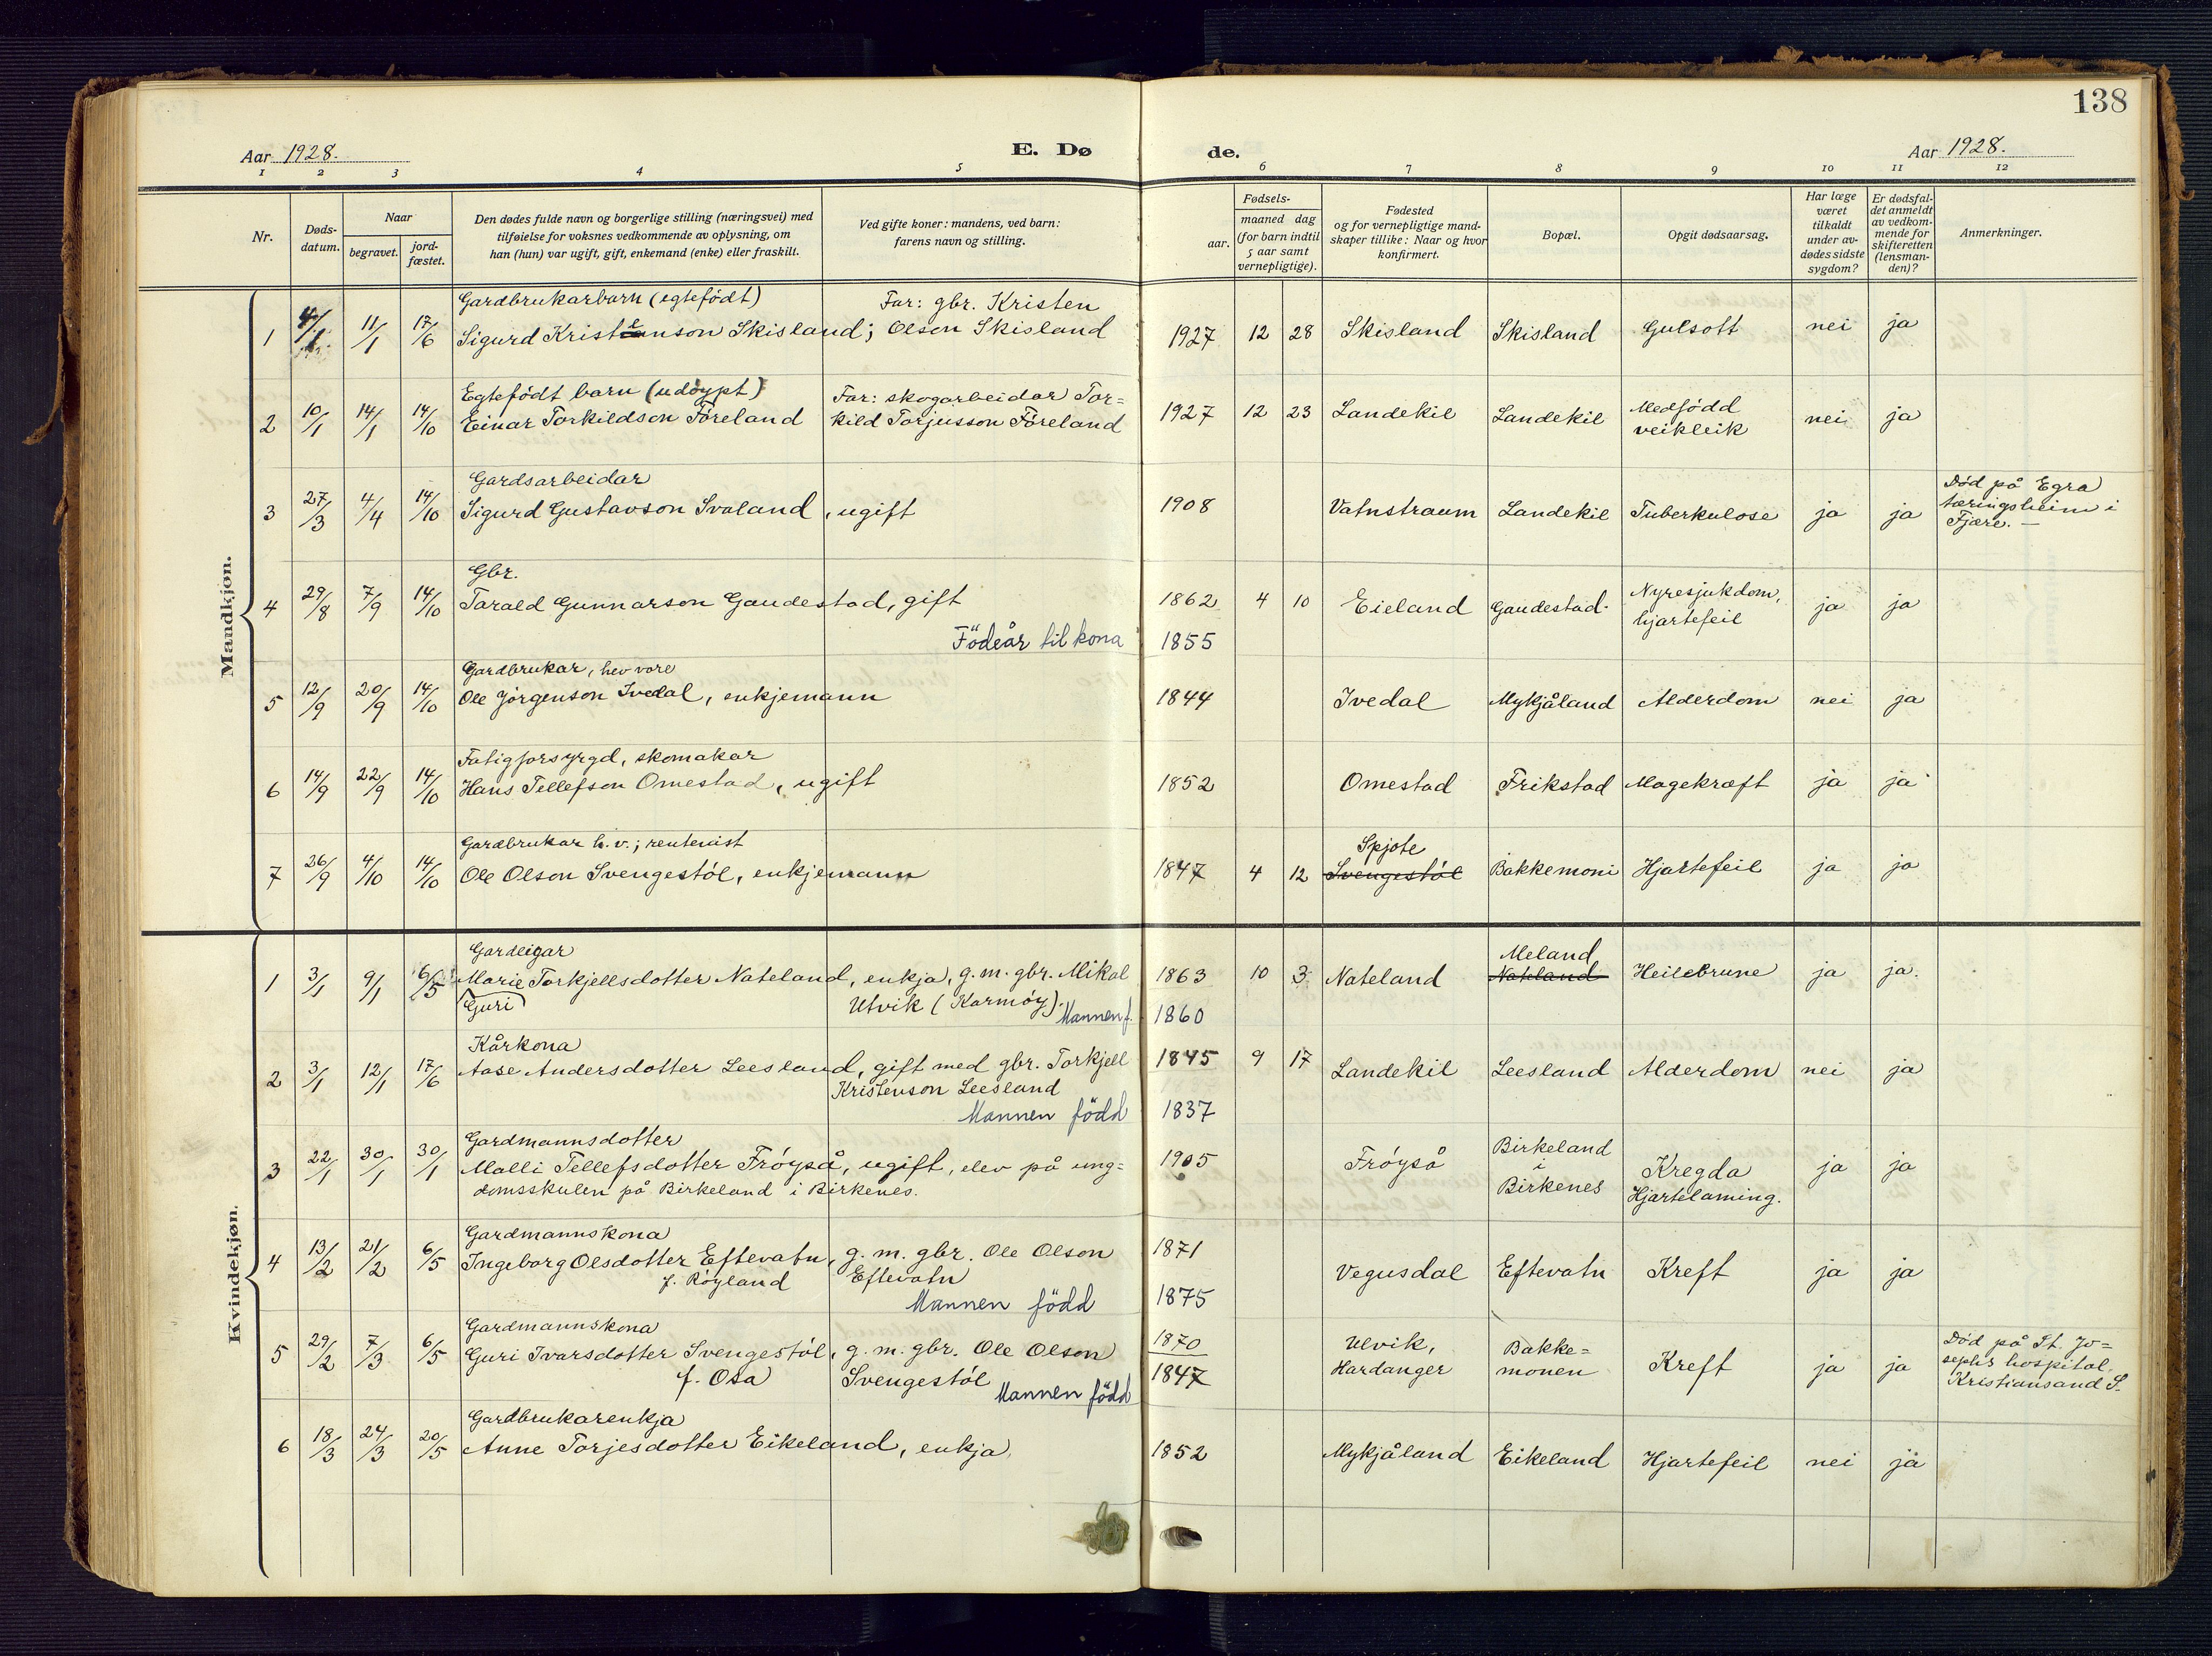 138
Aar 1928.
E. Dø
de.
Aar 1928.
1 2 3 4 5 6 7 8 9 10 11 12
Nr.
Døds-
datum.
Naar
begravet.
jord-
fæstet.
Den dødes fulde navn og borgerlige stilling (næringsvei) med
tilføielse for voksnes vedkommende av oplysning, om
han (hun) var ugift, gift, enkemand (enke) eller fraskilt.
Ved gifte koner: mandens, ved barn:
farens navn og stilling.
Fødsels-
aar.
maaned dag
(for barn indtil
5 aar samt
vernepligtige).
Fødested
og for vernepligtige mand-
skaper tillike: Naar og hvor
konfirmert.
Bopæl.
Opgit dødsaarsag.
Har læge
været
tilkaldt
under av-
dødes sidste
sygdom?
Er dødsfal-
det anmeldt
av vedkom-
mende for
skifteretten
(lensman-
den)?
Anmerkninger.
Mandkjøn.
Gardbrukarbarn (egtefödt) Far: gbr. Kristen
1 4/1 11/1 17/6 Sigurd Kristenson Skisland; Olson Skisland 1927 12 28 Skisland Skisland Gulsott nei ja
Egtefödt barn (udöypt) Far: skogarbeidar Tor=
2 10/1 14/1 14/10 Einar Torkildson Föreland kild Torjusson Föreland 1927 12 23 Landekil Landekil Medfödd
veikleik nei ja
Gardsarbeidar
3 27/3 4/4 14/10 Sigurd Gustavson Svaland, ugift 1908 Vatnstraum Landekil Tuberkulose ja ja Död på Egra
tæringsheim i
Fjære. —
Gbr.
4 29/8 7/9 14/10 Tarald Gunnarson Gaudestad, gift 1862 4 10 Eieland Gaudestad. Nyresjukdom,
hjartefeil ja ja
Födeår til kona 1855
Gardbrukar, hev vore
5 12/9 20/9 14/10 Ole Jörgenson Ivedal, enkjemann 1844 Ivedal Mykjåland Alderdom nei ja
Fatigforsyrgd, skomakar
6 14/9 22/9 14/10 Hans Tellefson Omestad, ugift 1852 Omestad Frikstad Magekræft ja ja
Gardbrukar h. v.; renteuist Spjote
7 26/9 4/10 14/10 Ole Olson Svengestöl, enkjemann 1847 4 12 Svengestöl Bakkemoni Hjartefeil ja ja
Kvindekjøn.
Gardeigar Meland
1 3/1 9/1 6/5 Marie Torkjellsdotter Nateland, enkja, g. m. gbr. Mikal 1863 10 3 Nateland Nateland Heilebrune ja ja.
(Guri) Utvik (Karmöy). Mannen f. 1860
Kårkona
2 3/1 12/1 17/6 Aase Andersdotter Leesland, gift med gbr. Torkjell 1845 9 17 Landekil Leesland Alderdom nei ja
Kristenson Leesland
Mannen född 1837
Gardmannsdotter
3 22/1 30/1 30/1 Malli Tellefsdotter Fröyså, ugift, elev på ung= 1905 Fröyså Birkeland
i
Birkenes Kregda
Hjartelaming. ja ja
domsskulen på Birkeland i Birkenes.
Gardmannskona
4 13/2 21/2 6/5 Ingeborg Olsdotter Eftevatn, g. m. gbr. Ole Olson 1871 Vegusdal Eftevatn Kreft ja ja
f. Röyland Eftevatn
Mannen född 1875
Gardmannskona
5 29/2 7/3 6/5 Guri Ivarsdotter Svengestöl, g. m. gbr. Ole Olson 1870 Ulvik,
Hardanger Bakke=
monen Kreft ja ja Död på St. Jo=
sephs hospital,
Kristiansand S.
f. Osa Svengestöl Mannen född 1847
Gardbrukarenkja
6 18/3 24/3 20/5 Anne Torjesdotter Eikeland, enkja, 1852 Mykjåland Eikeland Hjartefeil nei ja